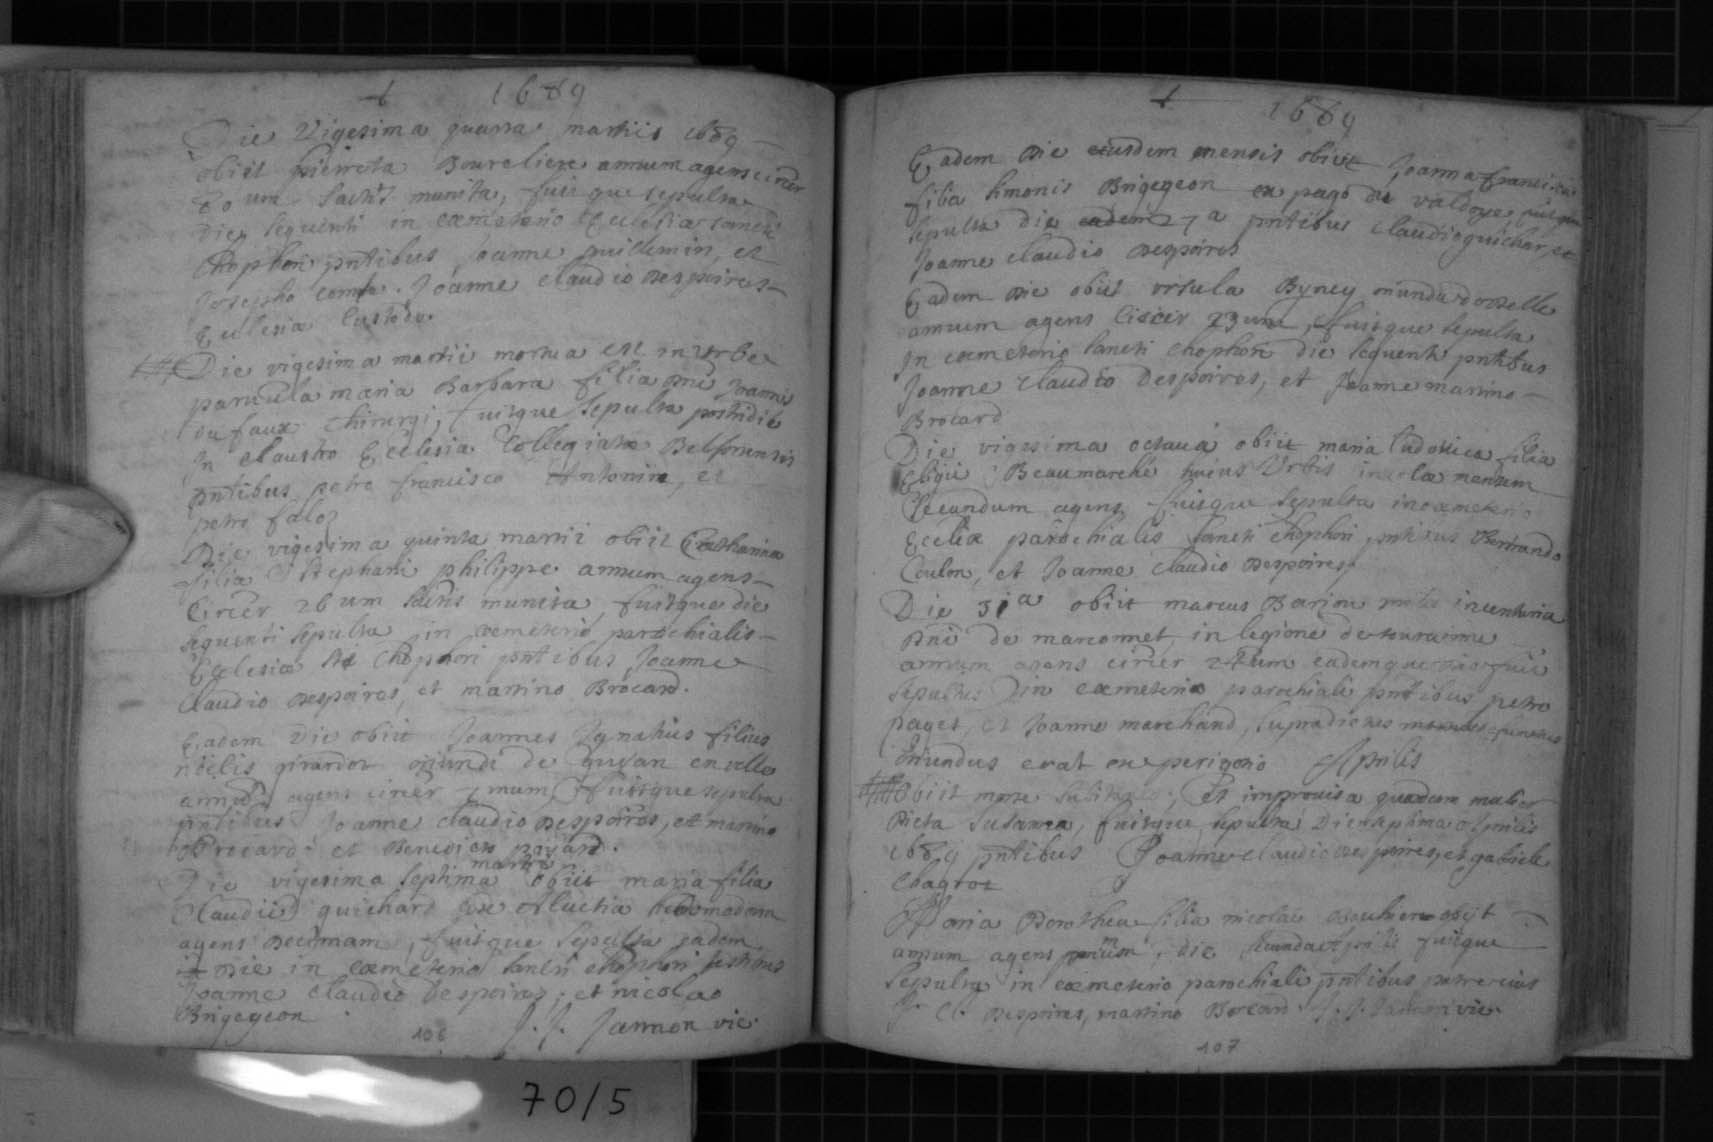 1689
Die Vigesima quarta martiis 1689
obiit pierreta Boureliere annum agens circiter
60 um sacris munita, fuitque sepulta
die sequenti in cœmeterio Ecclesiæ sancti
Chophori pntibus Joanne guillemin, et
Josepho comte. Joanne claudio Despoires
Ecclesiæ Custode.
Die vigesima martii mortua est in urbe
parvula maria Barbara filia Dni Joannis
du faux Chirurgi, fuitque sepulta postridie
In claustro Ecclesiæ Collegiatæ Belfortensis
pntibus petro francisco Antonin, et
petro falo
Die vigesima quinta martii obiit Catharina
filia Stephani philippe annum agens
Circer 26 um sacris munita, fuitque die
sequenti sepulta in cœmeterio parochialis
Ecclesiæ Sti Chophori pntibus Joanne
Claudio Despoires, et martino Brocard.
Eadem Die obiit Joannes Ignatius filius
nobilis girardot oriundi de
annum agens circer 7 mum fuitque sepultus
pntibus Joanne claudio Despoires, et martino
Brocard et Benedicto payard.
Die vigesima septima martii obiit maria filia
Claudii guichard hebdomadam
agens Decimam, fuitque sepulta eadem
Die in cœmeterio sancti chophori testibus
Joanne claudio Despoires; et nicolao
Brigegeon
J. J. Jannon vic.
106
1689
Eadem Die eiusdem mensis obiit Joanna francisca
filia simonis Brigegeon ex pago de valdoye fuitque
sepulta die eadem 27a pntibus claudio guichar, et
Joanne claudio Despoires
Eadem Die obiit ursula Byney
annum agens Circer 23 um, fuitque sepulta
In cœmeterio sancti chophori die sequenti pntibus
Joanne claudio Despoires, et Joanne martino
Brocard
Die vigesima octava obiit maria ludovica filia
Eligii Beaumarché huius Urbis incolæ mensem
Secundum agens fuitque sepulta in cœmeterio
Ecclæ parochialis sancti chophori pntibus Bertrando
Coulon, et Joanne claudio Despoires.
Die 31a obiit marcus Barion miles in centuria
Dni de marconnet, in legione de touraine
annum agens circer 24um eademque die fuit
sepultus in cœmeterio parochiali pntibus petro
pages, et Joanne marchand, supradictus defunctus
oriundus erat ex perigorio Aprilis
Obiit morte subitanea, Et improvisa quædam mulier
Dicta Susanna, fuitque sepulta Die septima Aprilis
1689 pntibus Joanne claudio Despoires, et gabriele
Chagrot
Maria Dorothea filia nicolai obijt
annum agens primum, die secunda Aprilis fuitque
sepulta in cœmeterio parochiali pntibus patre eius
J. Cl. Despoires, martino Brocard. J. J. Jannon vic.
107
70/5